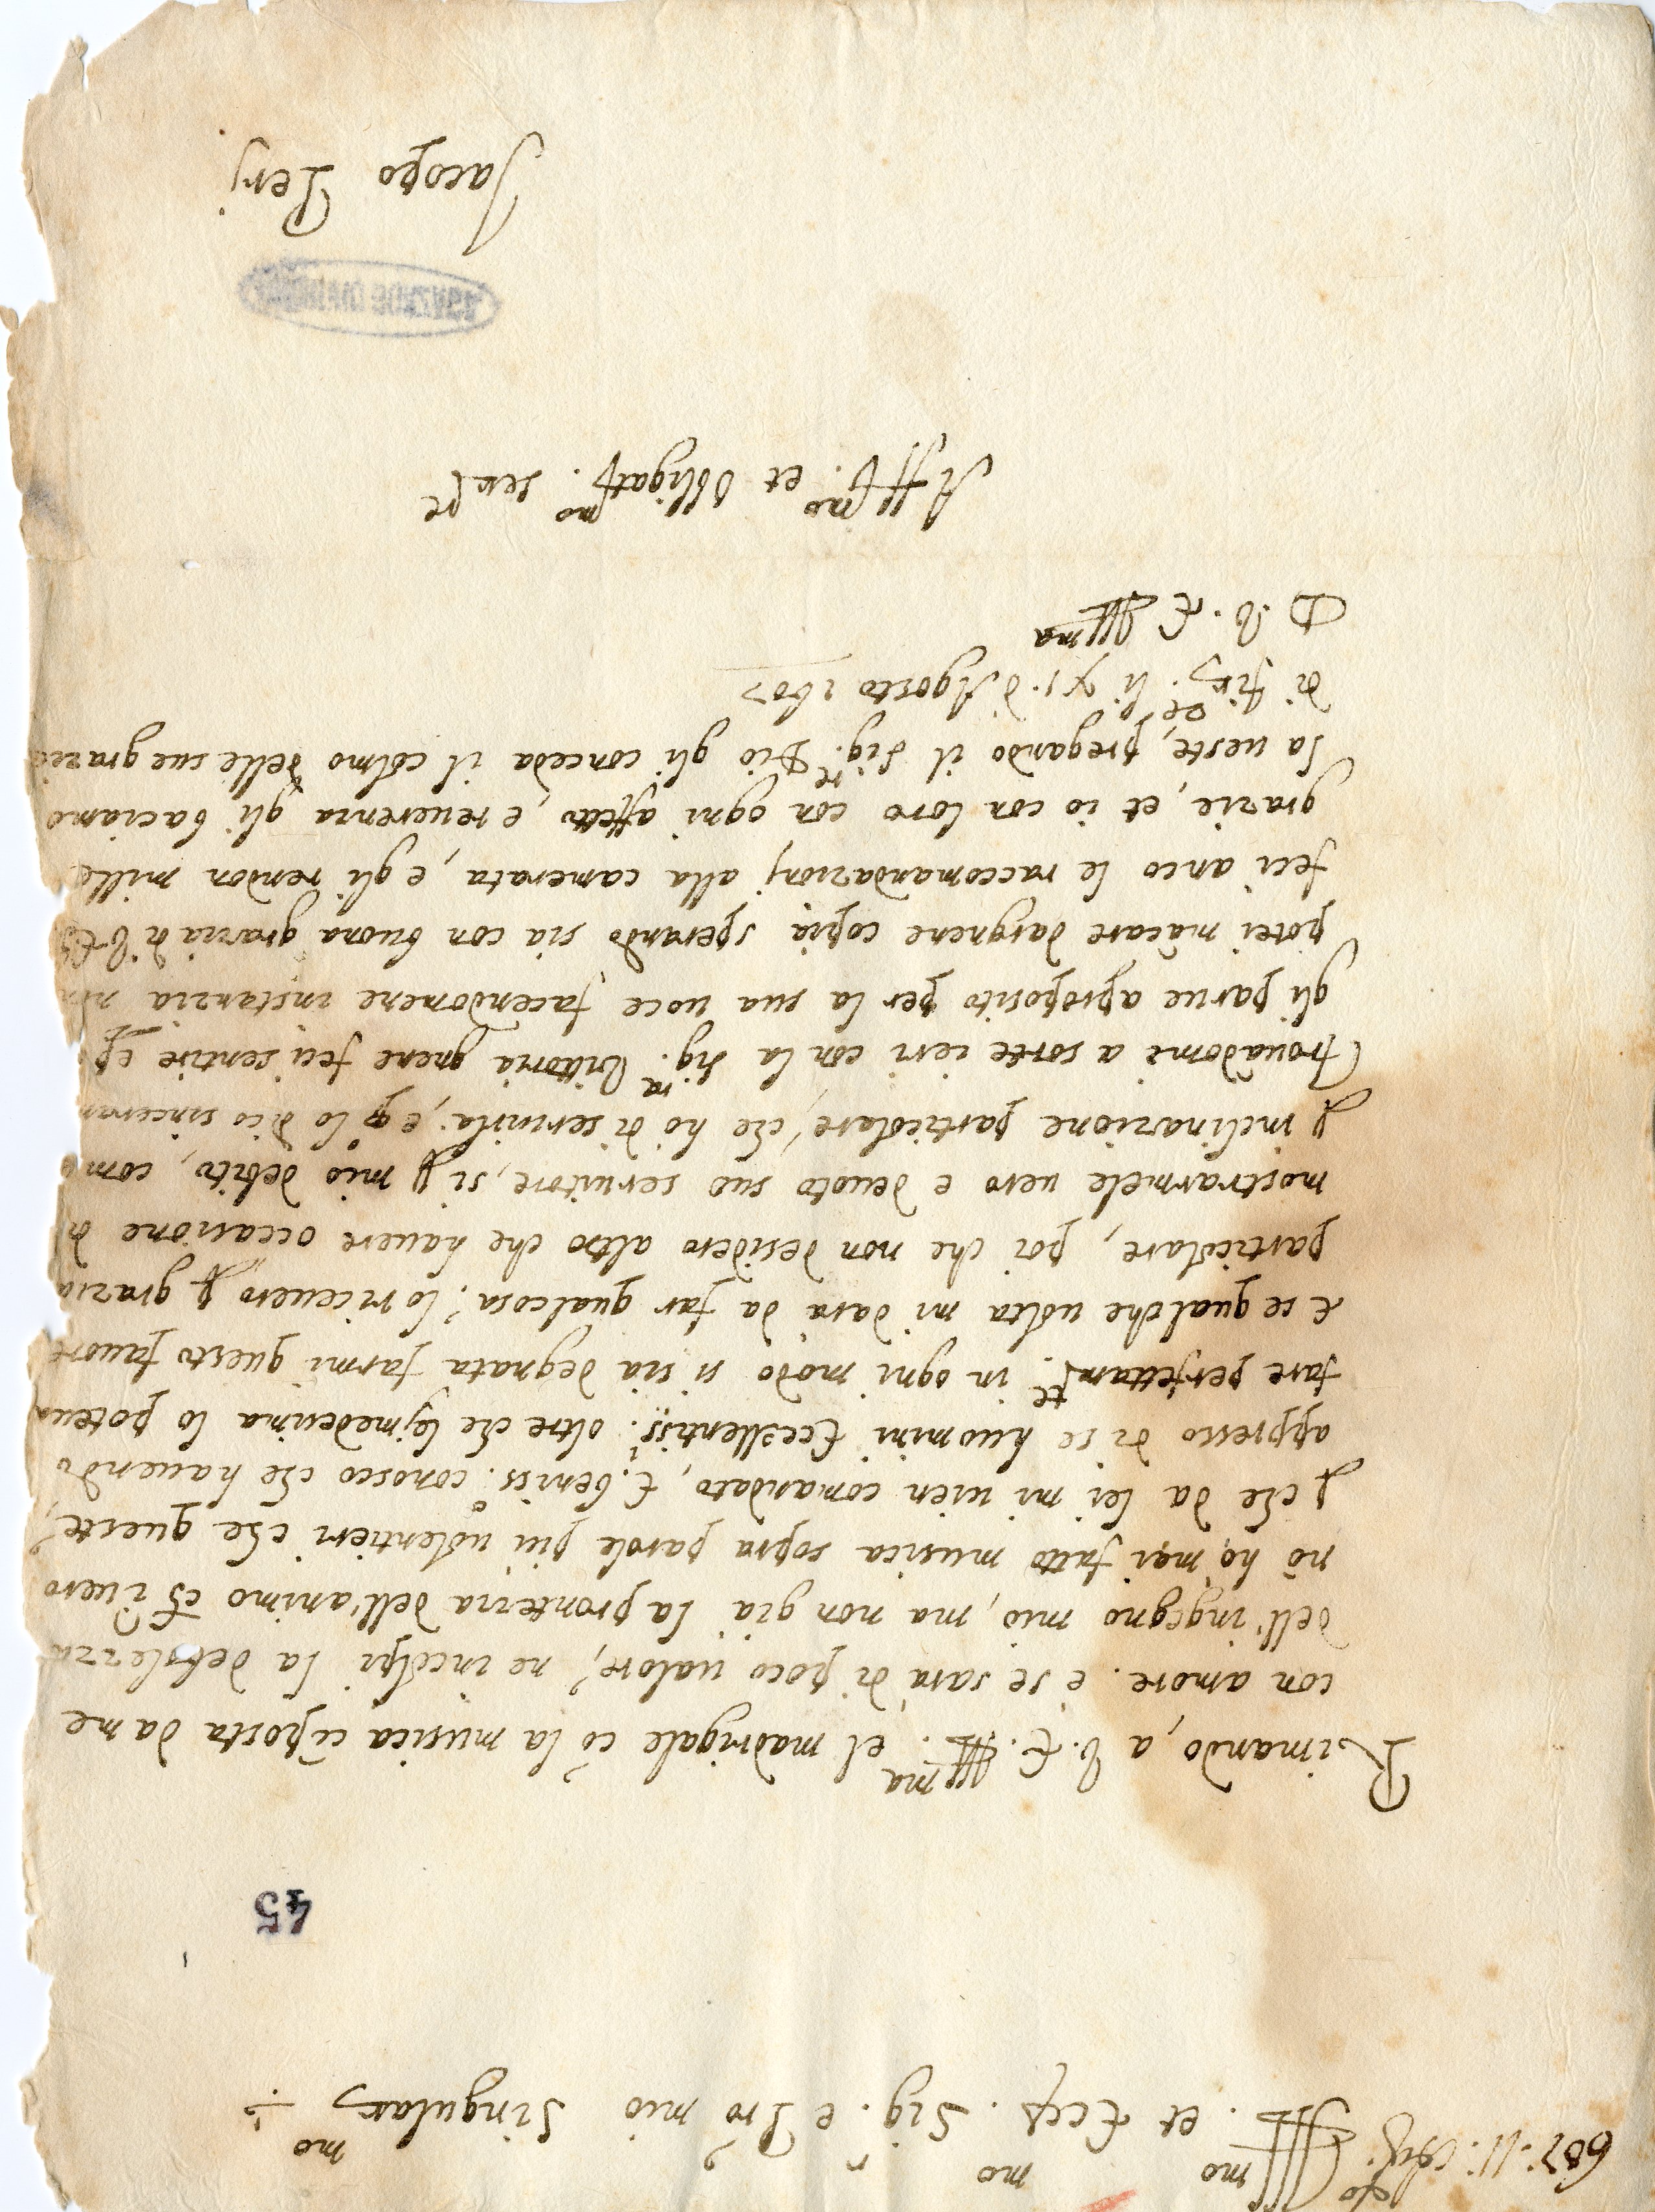 607. 11. Ag.to
Ill.mo et Ecc.mo Sig.r e Prõ mio Singular.mo
45
Rimando, a V. E. Ill.ma el madrigale cõ la musica cõposta da me
con amore. e se sarà di poco ualore, ne incolpi la debolezza
dell'ingegno mio, ma non già la prontezza dell'animo ch'è uero
nõ hò mai fatto musica sopra parole più uolentieri che queste,
p che da lei mi uien comandato, E beniss.o conosco che hauendo
appresso di se huomini Eccellentiss.i oltre che lei medesima lo poteua
fare perfettam.te in ogni modo si sia degnata farmi questo fauore
E se qualche uolta mi darà da far qualcosa, lo riceuerò p grazia
particolare, poi che non desidero altro che hauere occasione di
mostrarmele uero e deuoto suo seruitore, si p mio debito, come
p inclinazione particolare, che hò di seruirla, e q.o lo dico sinceram
trouãdomi a sorte ieri con la Sig.ra Vittoria gnene feci sentire e p
gli parue aproposito per la sua uoce facendomene instanzia nõ
potei mãcare dargnene copia sperando sia con buona grazia di V. E.
feci anco le raccomandazionj alla camerata, e gli rendon mille
grazie, et io con loro con ogni affetto, e reuerenza gli baciamo
la ueste, pregando il Sig.re Dio gli conceda il colmo delle sue grazie
di Fir.ze li xj. d'Agosto 1607
D. V. E. Ill.ma
Aff.mo et Obligat.mo Ser.re
Jacopo Perj